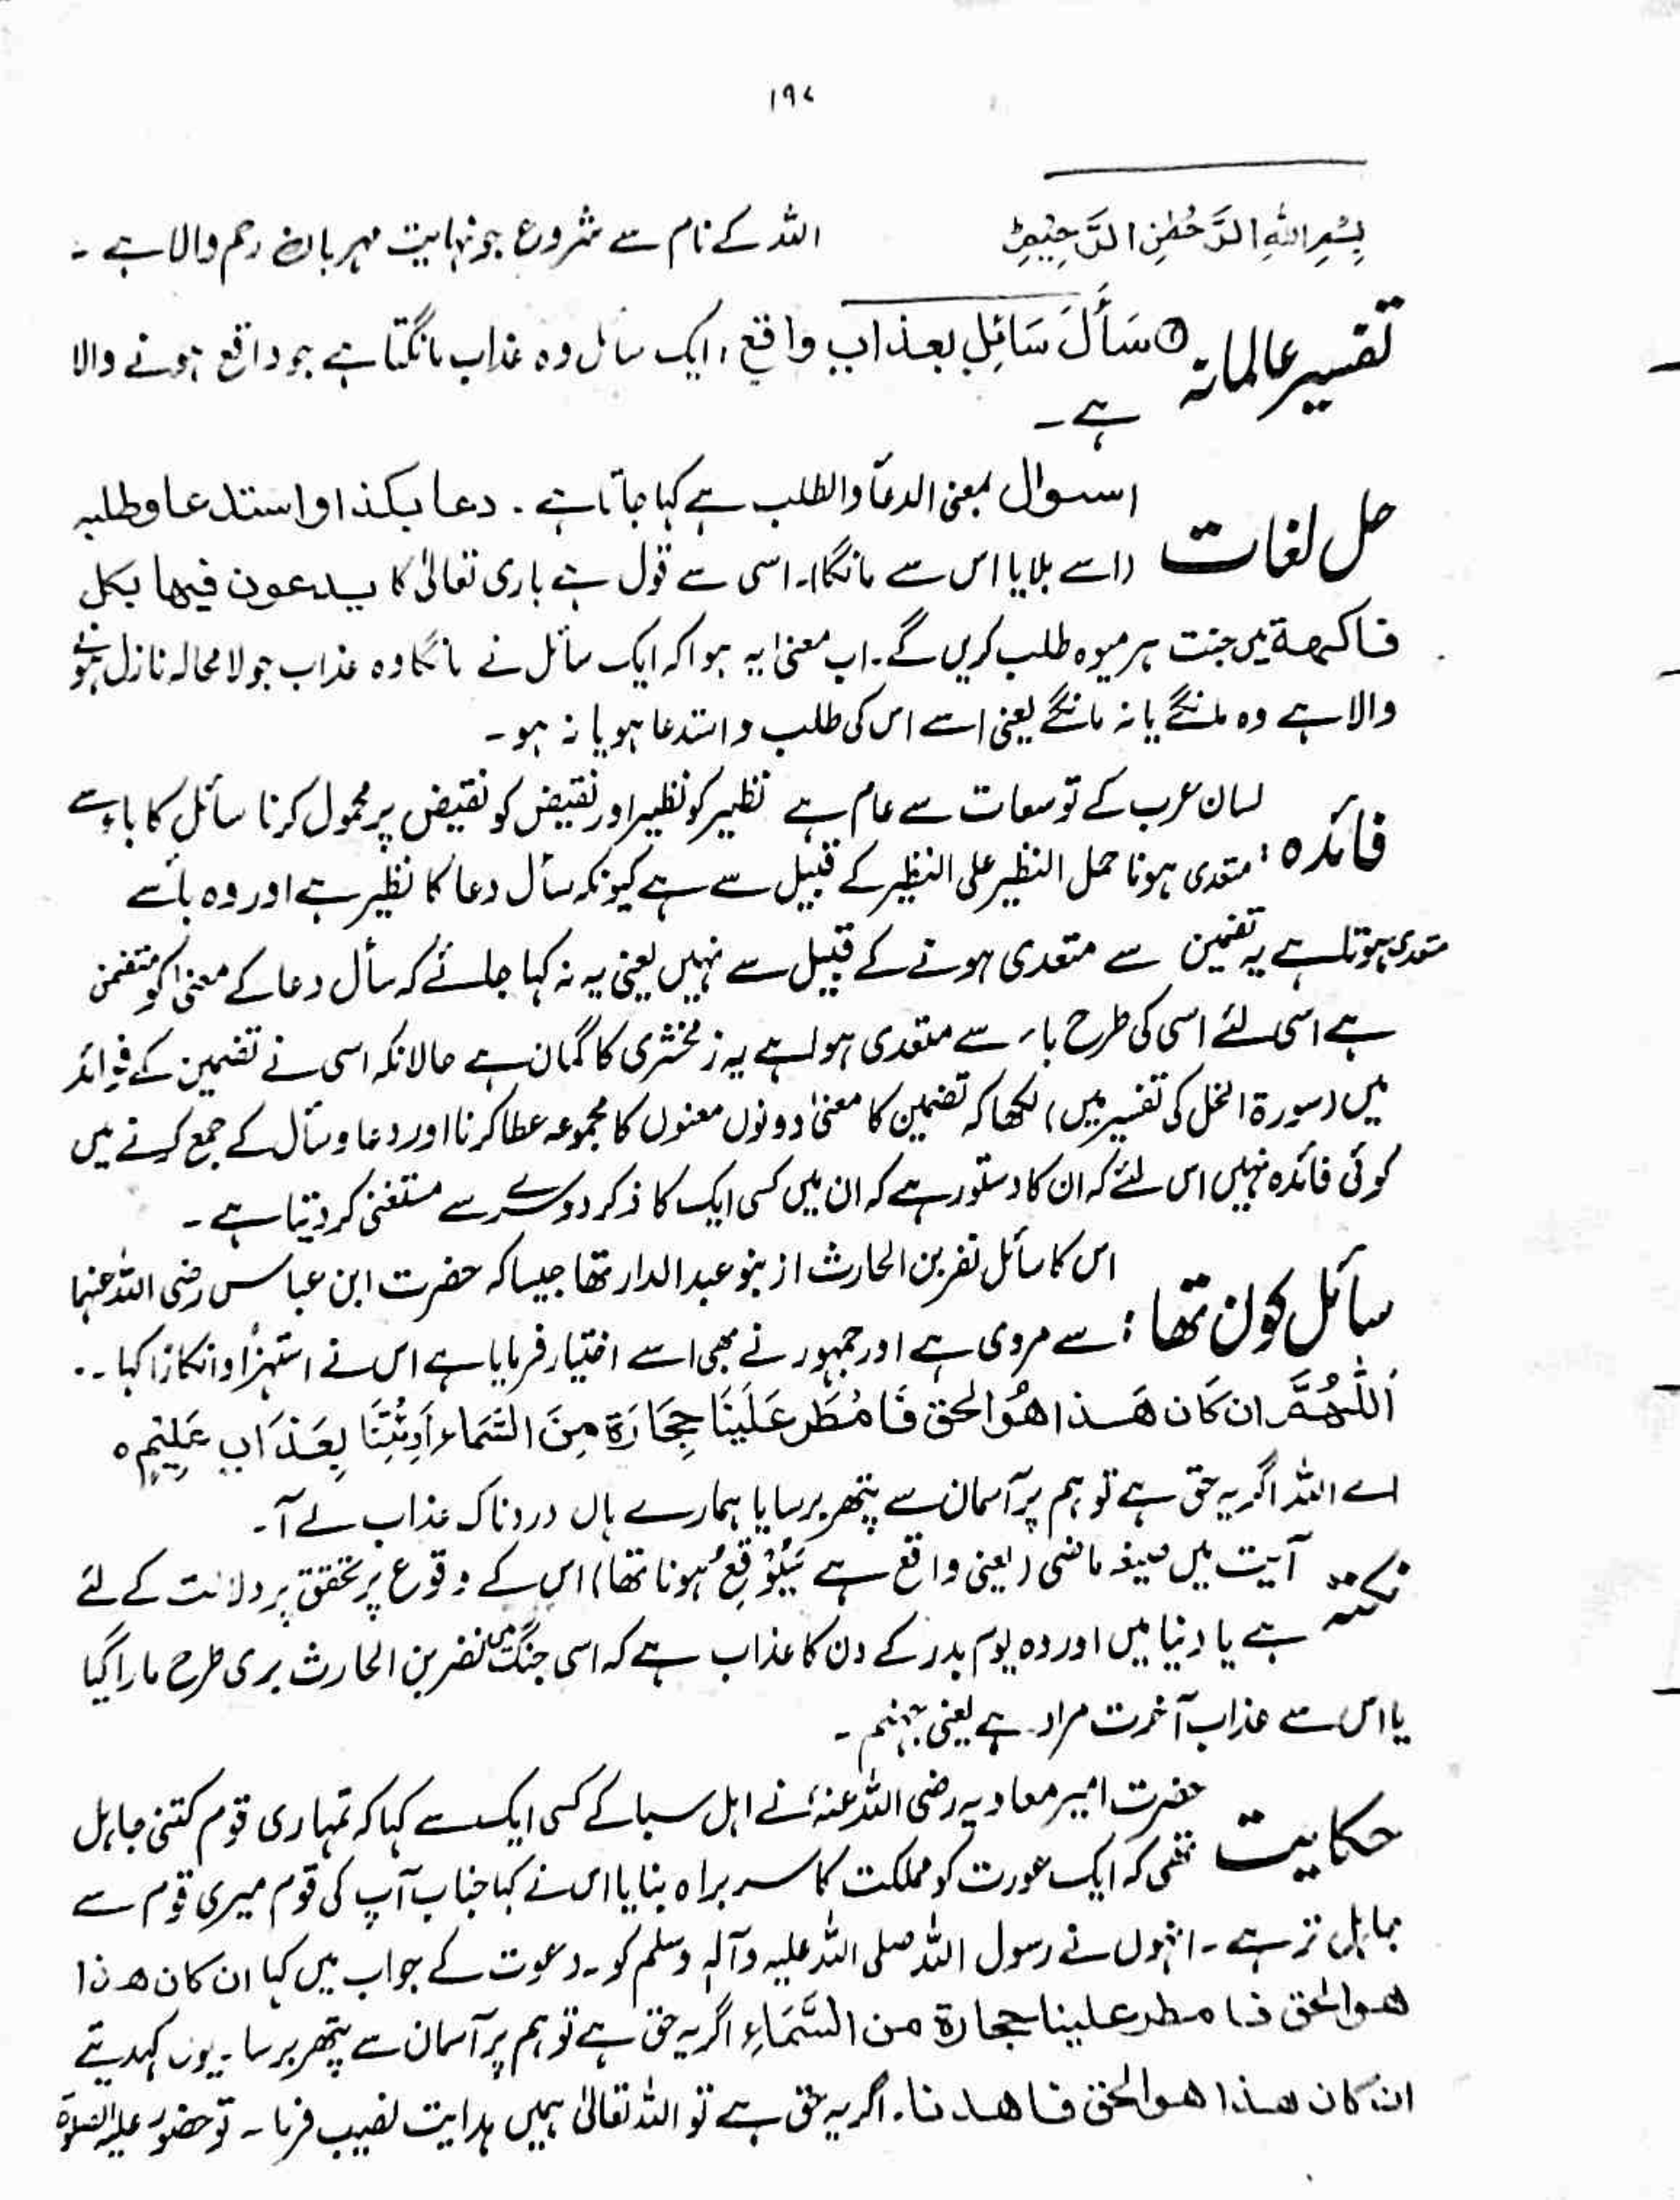 ۱۹۷
بِسْمِ اللّٰہِ الرَّحْمٰنِ الرَّحِیْمِ اللہ کے نام سے شروع جو نہایت مہربان رحم والا ہے ۔
تفسیر عالمانہ ① سَأَلَ سَائِلٌ بعذاب واقع ، ایک سائل وہ عذاب مانگتا ہے جو واقع ہونے والا
ہے ۔
حل لغات اسوال بمعنی الدعا والطلب ہے کہا جاتا ہے ۔ دعا بکذا واستدعا وطلبہ
(اسے بلایا اس سے مانگا)۔ اسی سے قول ہے باری تعالیٰ کا یدعون فیھا بکل
فاکھۃ میں جنت ہر میوہ طلب کریں گے ۔ اب معنیٰ یہ ہوا کہ ایک سائل نے مانگا وہ عذاب جو لامحالہ نازل ہونے
والا ہے وہ مانگے یا نہ مانگے یعنی اسے اس کی طلب و استدعا ہو یا نہ ہو ۔
فائدہ : لسان عرب کے توسعات سے عام ہے نظیر کو نظیر اور نقیض کو نقیض پر محمول کرنا سائل کا باء سے
متعدی ہونا حمل النظیر علی النظیر کے قبیل سے ہے کیونکہ سأل دعا کا نظیر ہے اور وہ بأسے
متعدی ہوتا ہے یہ تضمین سے متعدی ہونے کے قبیل سے نہیں یعنی یہ نہ کہا جائے کہ سأل دعا کے معنیٰ کو متضمن
ہے اسی لئے اسی کی طرح باء سے متعدی ہوا ہے یہ زمخشری کا گمان ہے حالانکہ اسی نے تضمین کے فوائد
میں (سورۃ النحل کی تفسیر میں) لکھا کہ تضمین کا معنیٰ دونوں معنوں کا مجموعہ عطا کرنا اور دعا وسأل کے جمع کرنے میں
کوئی فائدہ نہیں اس لئے کہ ان کا دستور ہے کہ ان میں کسی ایک کا ذکر دوسرے سے مستغنی کر دیتا ہے ۔
سائل کون تھا : اس کا سائل نضر بن الحارث از بنو عبد الدار تھا جیسا کہ حضرت ابن عباس رضی اللہ عنہما
سے مروی ہے اور جمہور نے بھی اسے اختیار فرمایا ہے اس نے استہزاً وانکاراً کہا ۔۔
اَللّٰھُمَّ ان کَان ھَذا ھُوَ الحق فَامُطَر عَلَینَا حِجَارَۃ مِنَ السَّمَاء اَوِئتِنَا بِعَذَاب عَلِیْمٍ ہ
اے اللہ اگر یہ حق ہے تو ہم پر آسمان سے پتھر برسا یا ہمارے ہاں دردناک عذاب لے آ ۔
نکتہ آیت میں صیغہ ماضی (یعنی واقع ہے سَیُوْقِعُ ہونا تھا) اس کے وقوع پر تحقق پر دلالت کے لئے
ہے یا دنیا میں اور وہ یوم بدر کے دن کا عذاب ہے کہ اسی جنگ میں نضر بن الحارث بری طرح مارا گیا
یا اس سے عذاب آخرت مراد ہے یعنی جہنم ۔
حکایت حضرت امیر معاویہ رضی اللہ عنہ نے اہل سبا کے کسی ایک سے کہا کہ تمہاری قوم کتنی جاہل
تھی کہ ایک عورت کو مملکت کا سربراہ بنایا اس نے کہا جناب آپ کی قوم میری قوم سے
جاہل تر ہے ۔ انہوں نے رسول اللہ صلی اللہ علیہ وآلہٖ وسلم کو ۔ دعوت کے جواب میں کہا ان کان ھذا
ھو الحق فامطر علینا حجارۃ من السَّمَاءِ اگر یہ حق ہے تو ہم پر آسمان سے پتھر برسا ۔ یوں کہدیتے
ان کان ھذا ھو الحق فاھدنا ۔ اگر یہ حق ہے تو اللہ تعالیٰ ہمیں ہدایت نصیب فرما ۔ تو حضور علیہ الصلوٰۃ